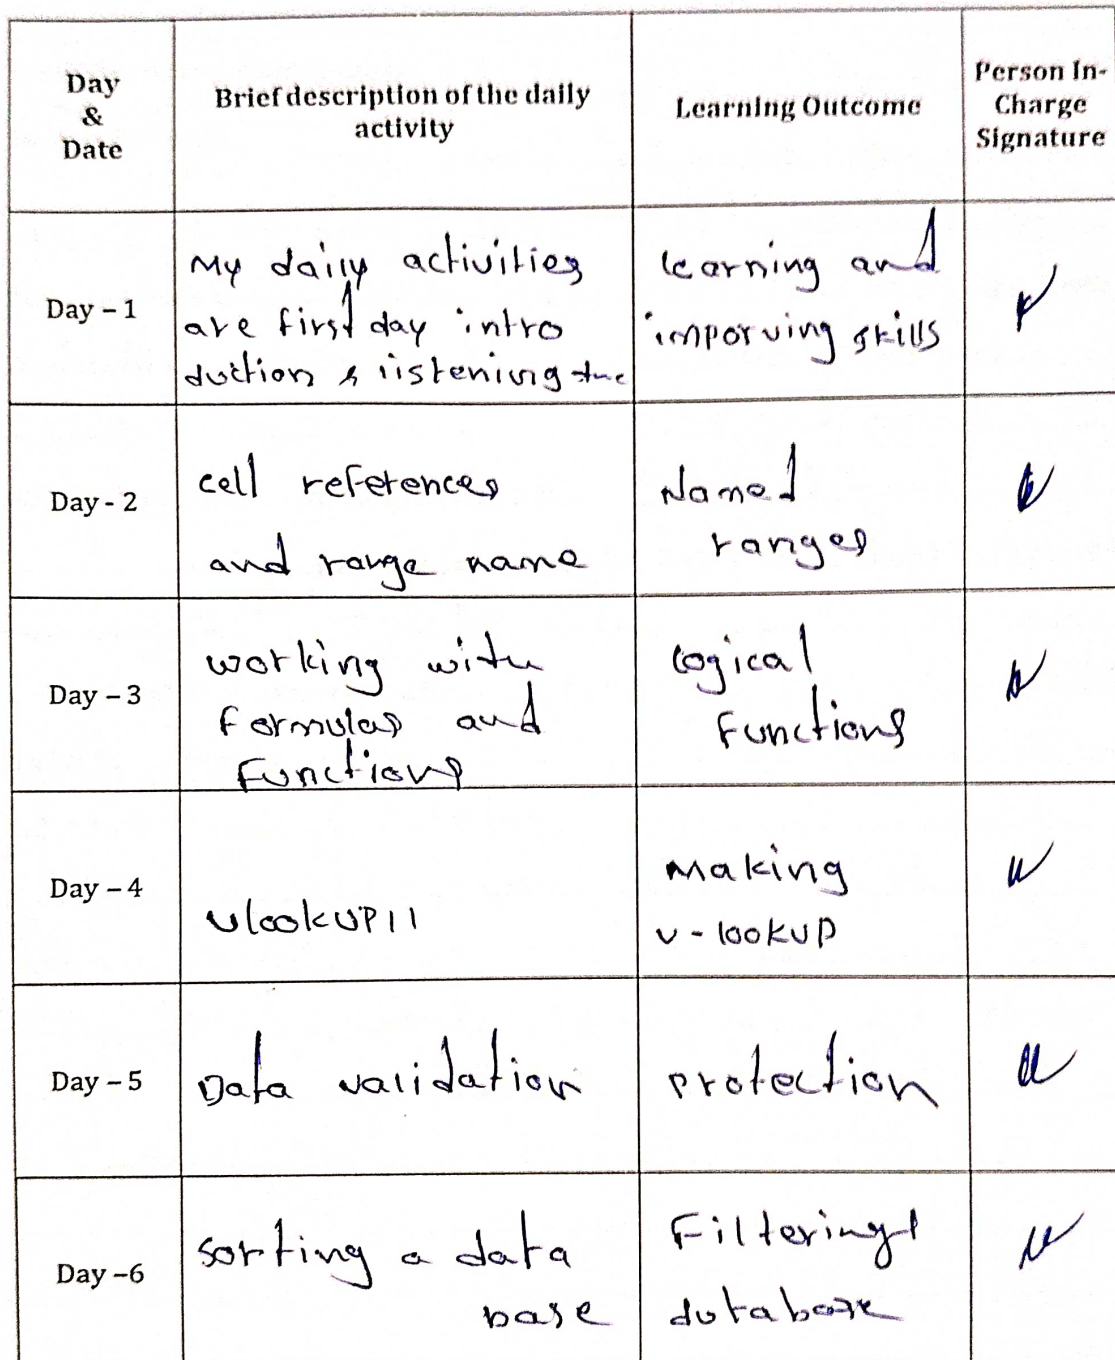 Day
&
Date
Brief description of the daily
activity
Learning Outcome
Person In-
Charge
Signature
Day – 1
My daily activities
are first day intro
duction & listening the
learning and
imporving skills
Day - 2
cell references
and range name
Named
ranges
Day – 3
working with
formulas and
Functions
logical
Functions
Day – 4
vlookUP11
making
v - lookup
Day – 5
Data validation
protection
Day –6
sorting a data
base
Filtering
database